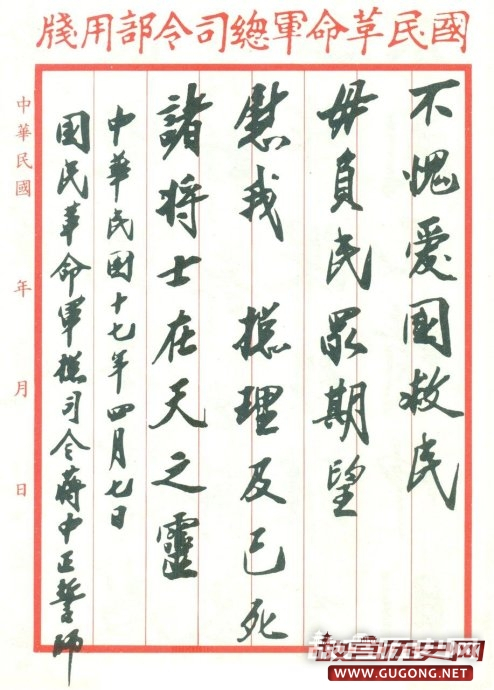 國民革命軍總司令部用牋
不愧愛國救民
毋負民眾期望
慰我 總理及已死
諸將士在天之靈
中華民國十七年四月七日
國民革命軍總司令蔣中正誓師
中華民國 年 月 日
故宫历史网
WWW.GUGONG.NET